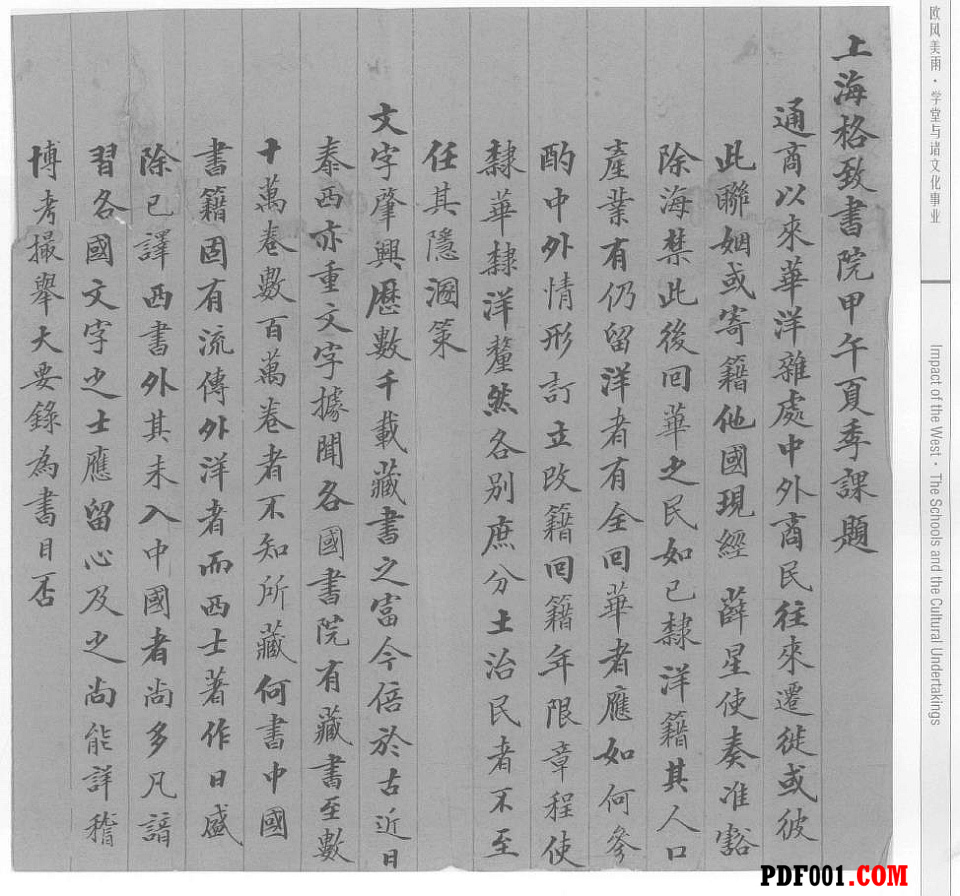 上海格致書院甲午夏季課題
通商以來華洋雜處中外商民往來遷徙或彼
此聯姻或寄籍他國現經 薛星使奏准豁
除海禁此後回華之民如已隸洋籍其人口
產業有仍留洋者有全回華者應如何參
酌中外情形訂立改籍回籍年限章程使
隸華隸洋釐然各別庶分土治民者不至
任其隱溷策
文字肇興歷數千載藏書之富今倍於古近日
泰西亦重文字據聞各國書院有藏書至數
十萬卷數百萬卷者不知所藏何書中國
書籍固有流傳外洋者而西士著作日盛
除已譯西書外其未入中國者尚多凡諳
習各國文字之士應留心及之尚能詳稽
博考撮舉大要錄為書目否
欧风美雨·学堂与诸文化事业
Impact of the West · The Schools and the Cultural Undertakings
PDF001.COM